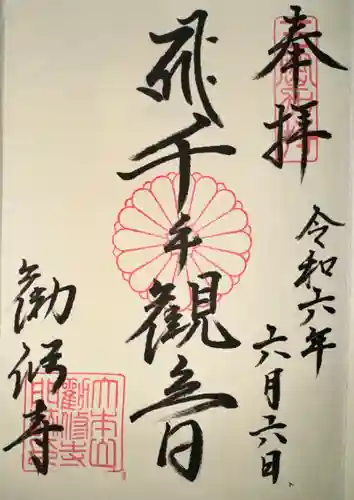 奉拝
令和六年
六月六日
千手観音
勧修寺